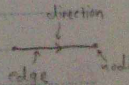 direction
edge
nod